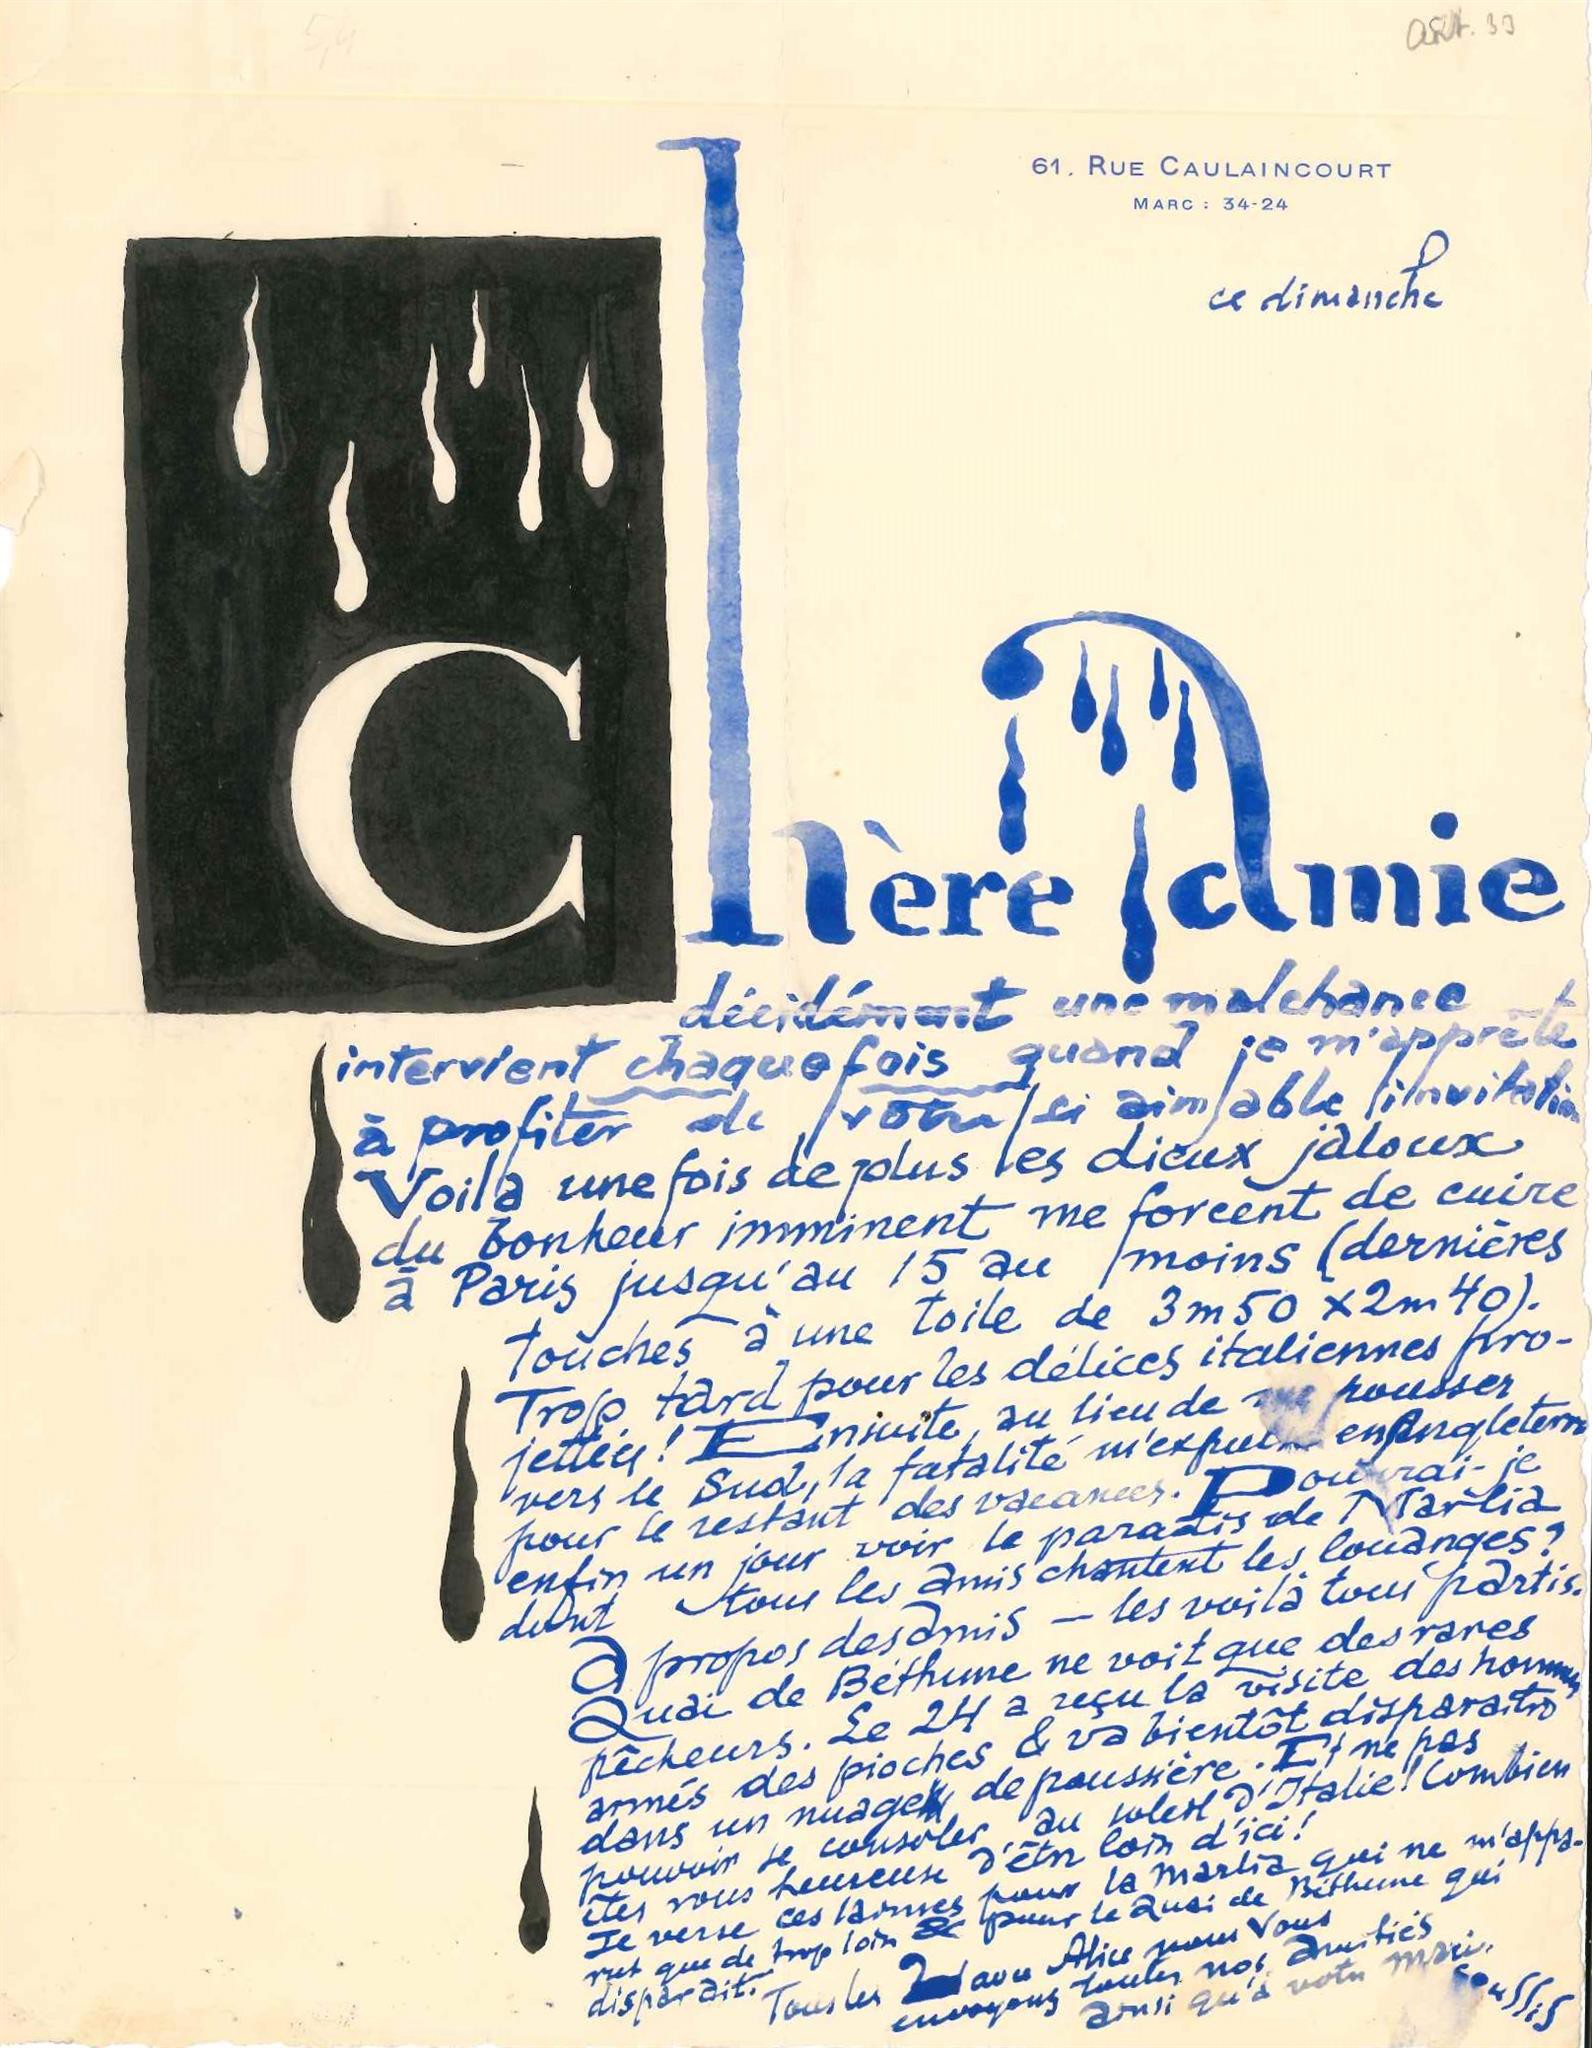 61. RUE CAULAINCOURT
MARC : 34-24
ce dimanche
Chère amie
décidément une malchance
intervient chaque fois quand je m'apprête
à profiter de votre si aimable invitation
Voilà une fois de plus les dieux jaloux
du bonheur imminent me forcent de cuire
à Paris jusqu'au 15 au moins (dernières
touches à une toile de 3m50 x 2m40).
Trop tard pour les délices italiennes pro-
jettées! Ensuite, au lieu de me pousser
vers le Sud, la fatalité m'expulse en Angleterre
pour le restant des vacances. Pourrai-je
enfin un jour voir le paradis de Marlia
dont tous les amis chantent les louanges?
A propos des amis — les voilà tous partis.
Quai de Béthune ne voit que des rares
pêcheurs. Le 24 a reçu la visite des hommes
armés des pioches & va bientôt disparaitre
dans un nuage de poussière. Et ne pas
pouvoir se consoler au soleil d'Italie! Combien
êtes vous heureuse d'être loin d'ici!
Je verse ces larmes pour la Marlia qui ne m'appa-
rut que de trop loin & pour le Quai de Béthune qui
disparait.
Tous les 2 avec Alice nous vous
envoyons toutes nos amitiés
ainsi qu'à votre mari.